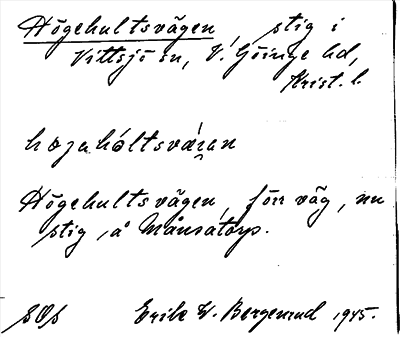 Högehultsvägen, stig i
Vittsjö sn, V. Göinge hd,
Krist. l.
högahóltsvä́gan
Högehultsvägen, förr väg, nu
stig, å Månsatorp.
SOs
Erik W. Bergenrud 1945.